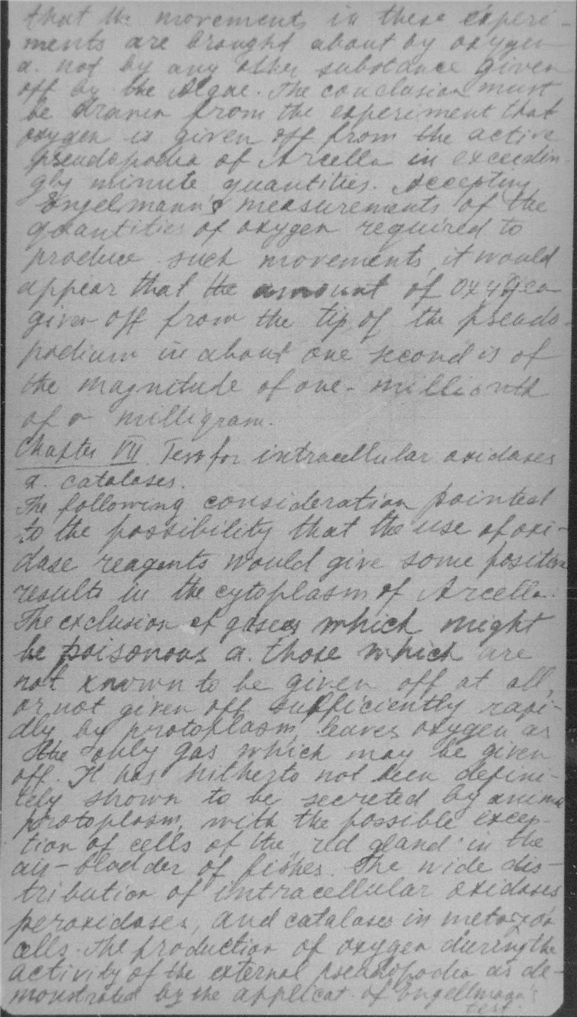 that the movements in these experi-
ments are brought about by oxygen
a. not by any other substance given
off by the Algae. The conclusion must
be drawn from the experiment that
oxygen is given off from the active
pseudopodia of Arcella in exceedin-
gly minute quantities. Accepting
Engelmann's measurements of the
quantities of oxygen required to
produce such movements, it would
appear that the amount of oxygen
given off from the tip of the pseudo-
podium in about one second is of
the magnitude of one-millionth
of a milligram.
Chapter VII Test for intracellular oxidases
a. catalases.
The following consideration pointed
to the possibility that the use of oxi-
dase reagents would give some positive
results in the cytoplasm of Arcella.
The exclusion of gases which might
be poisonous a. those which are
not known to be given off at all,
or not given off sufficiently rapi-
dly by protoplasm, leaves oxygen as
the only gas which may be given
off. It has hitherto not been defini-
tely shown to be secreted by animal
protoplasm, with the possible excep-
tion of cells of the red gland in the
air-bladder of fishes. The wide dis-
tribution of intracellular oxidases
peroxidases, and catalases in metazoa
cells. The production of oxygen during the
activity of the external pseudopodia as de-
monstrated by the applicat. of Engellmann's
test.